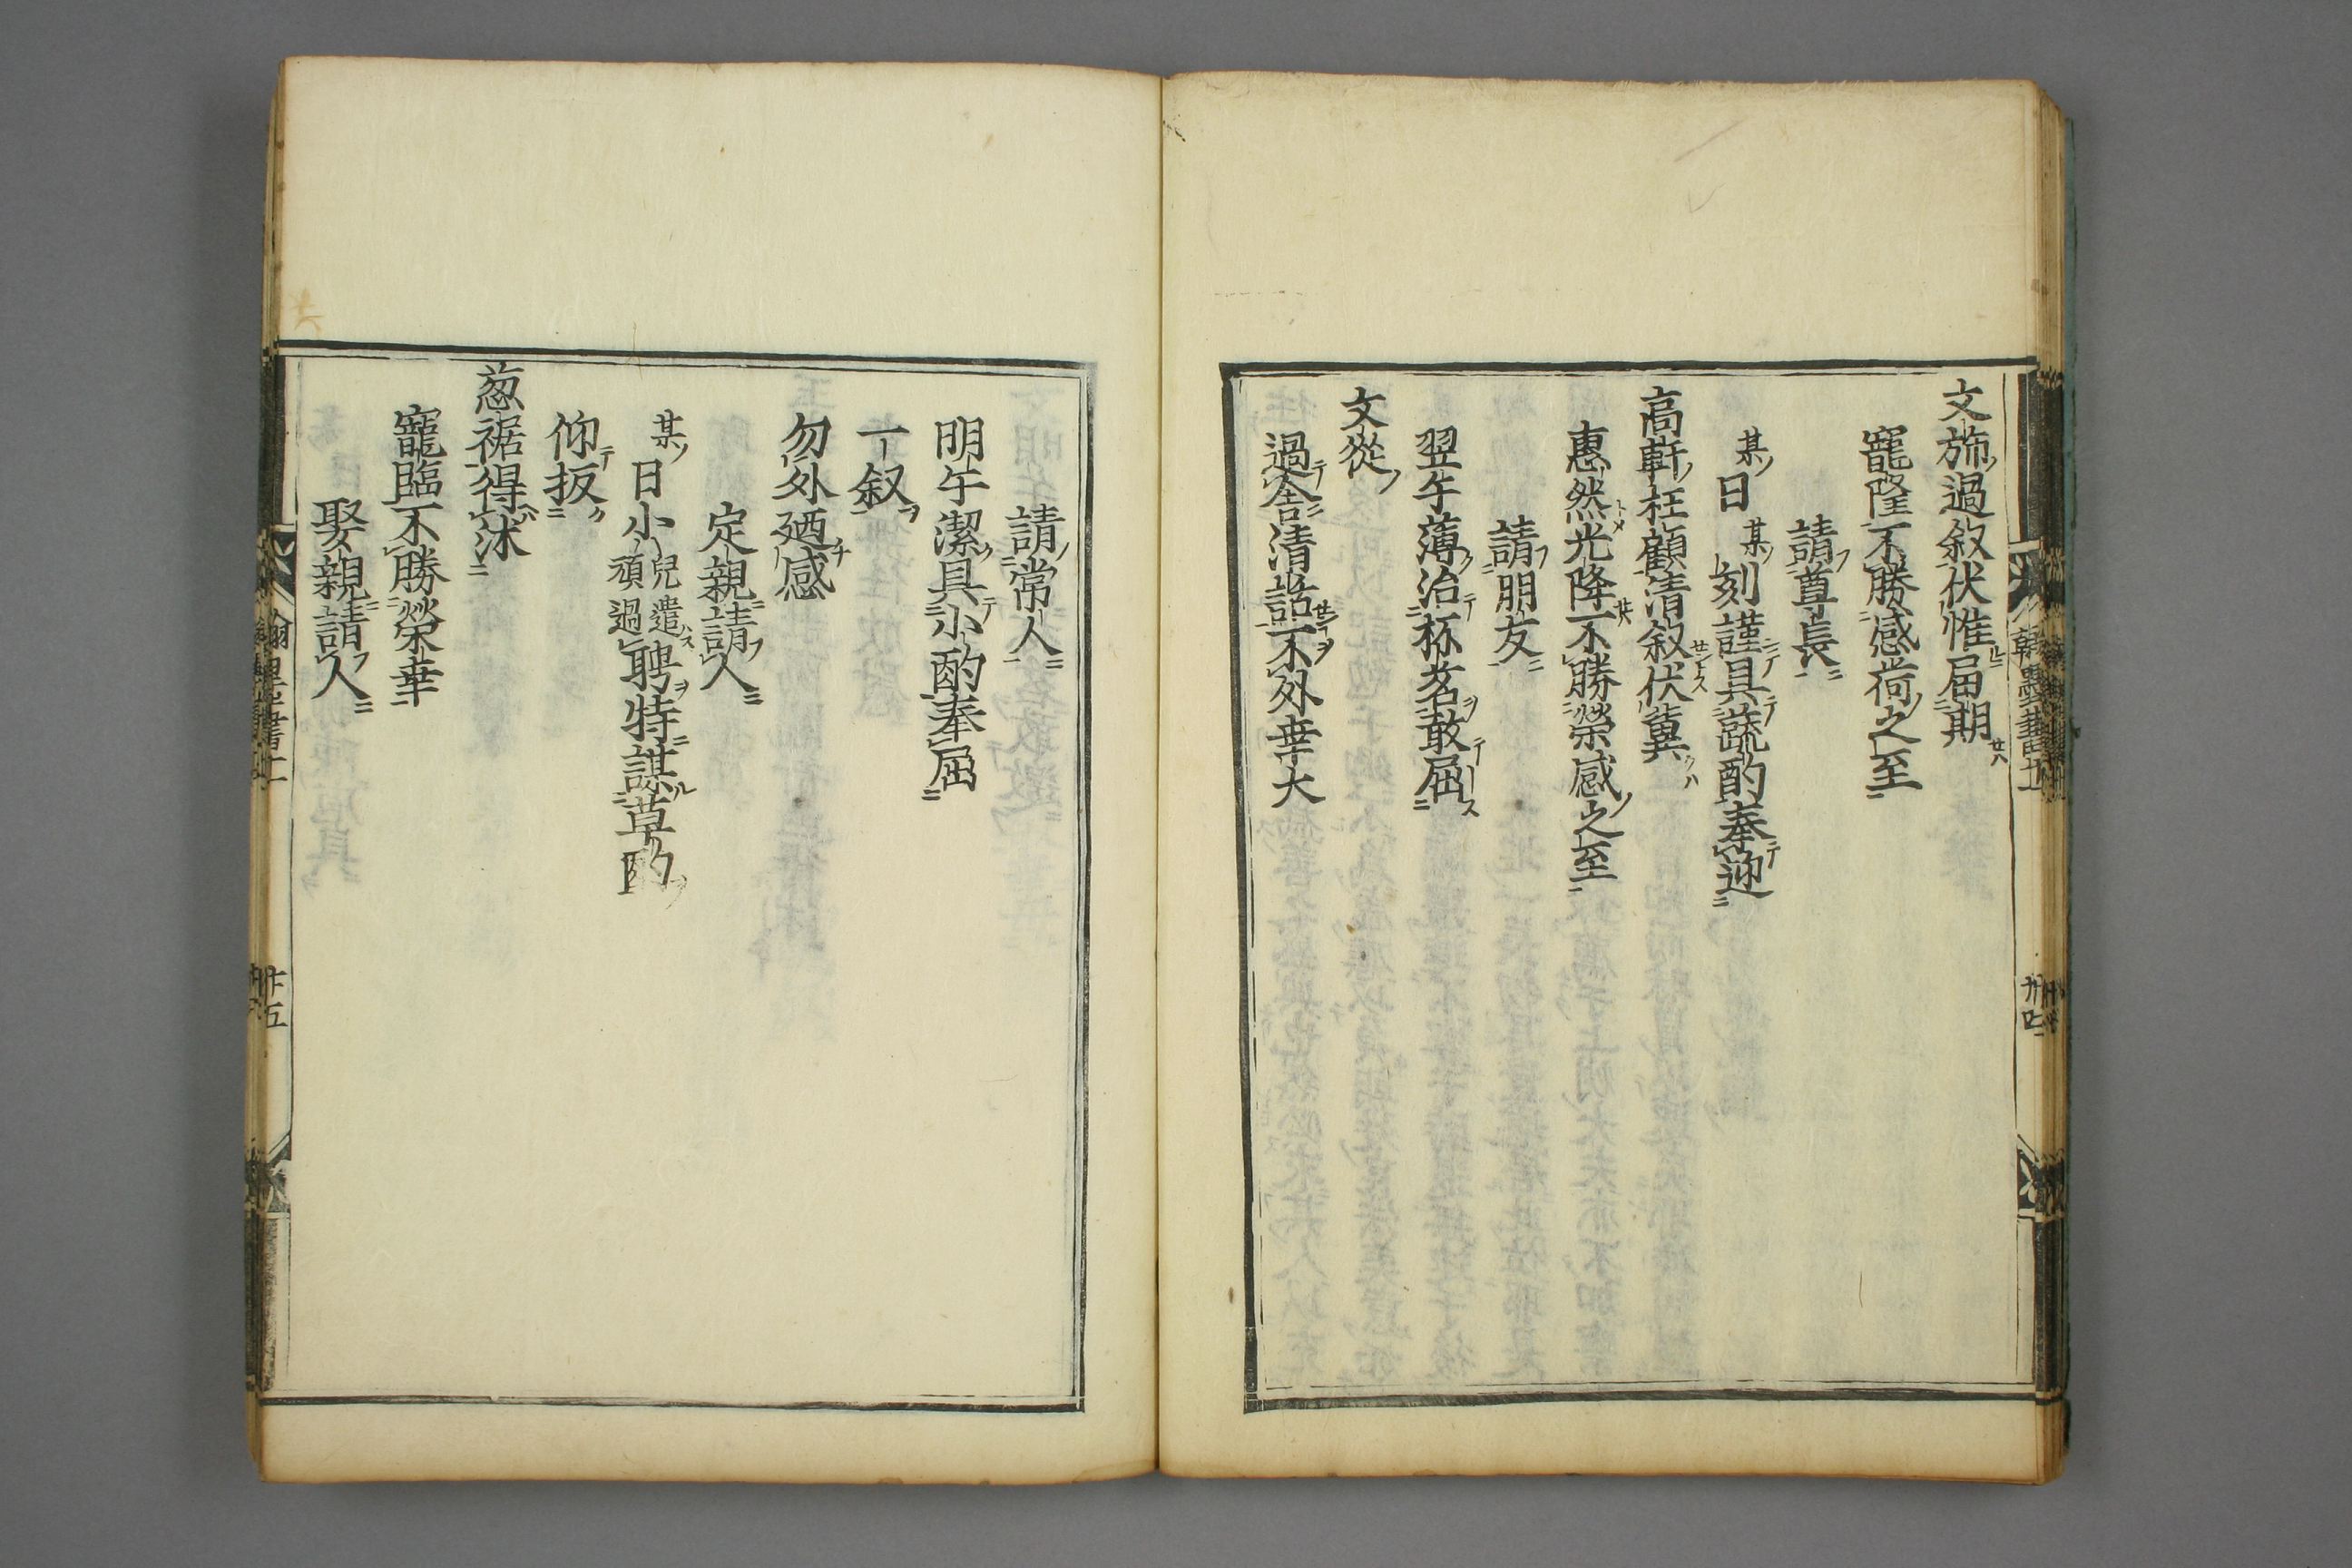 文斾過敘伏惟屆期
寵隆不勝感荷之至
請尊長
某日某刻謹具蔬酌奉迎
高軒枉顧清敘伏冀
惠然光降不勝榮感之至
請朋友
翌午薄治杯茗敢屈
文從
過舍清話不外幸大
請常人
明午潔具小酌奉屈
一叙
勿外廼感
定親請人
某日小兒遣頑過聘特謀草酌
仰扳
葱裾得沭
寵臨不勝榮幸
娶親請人
廿四
廿五